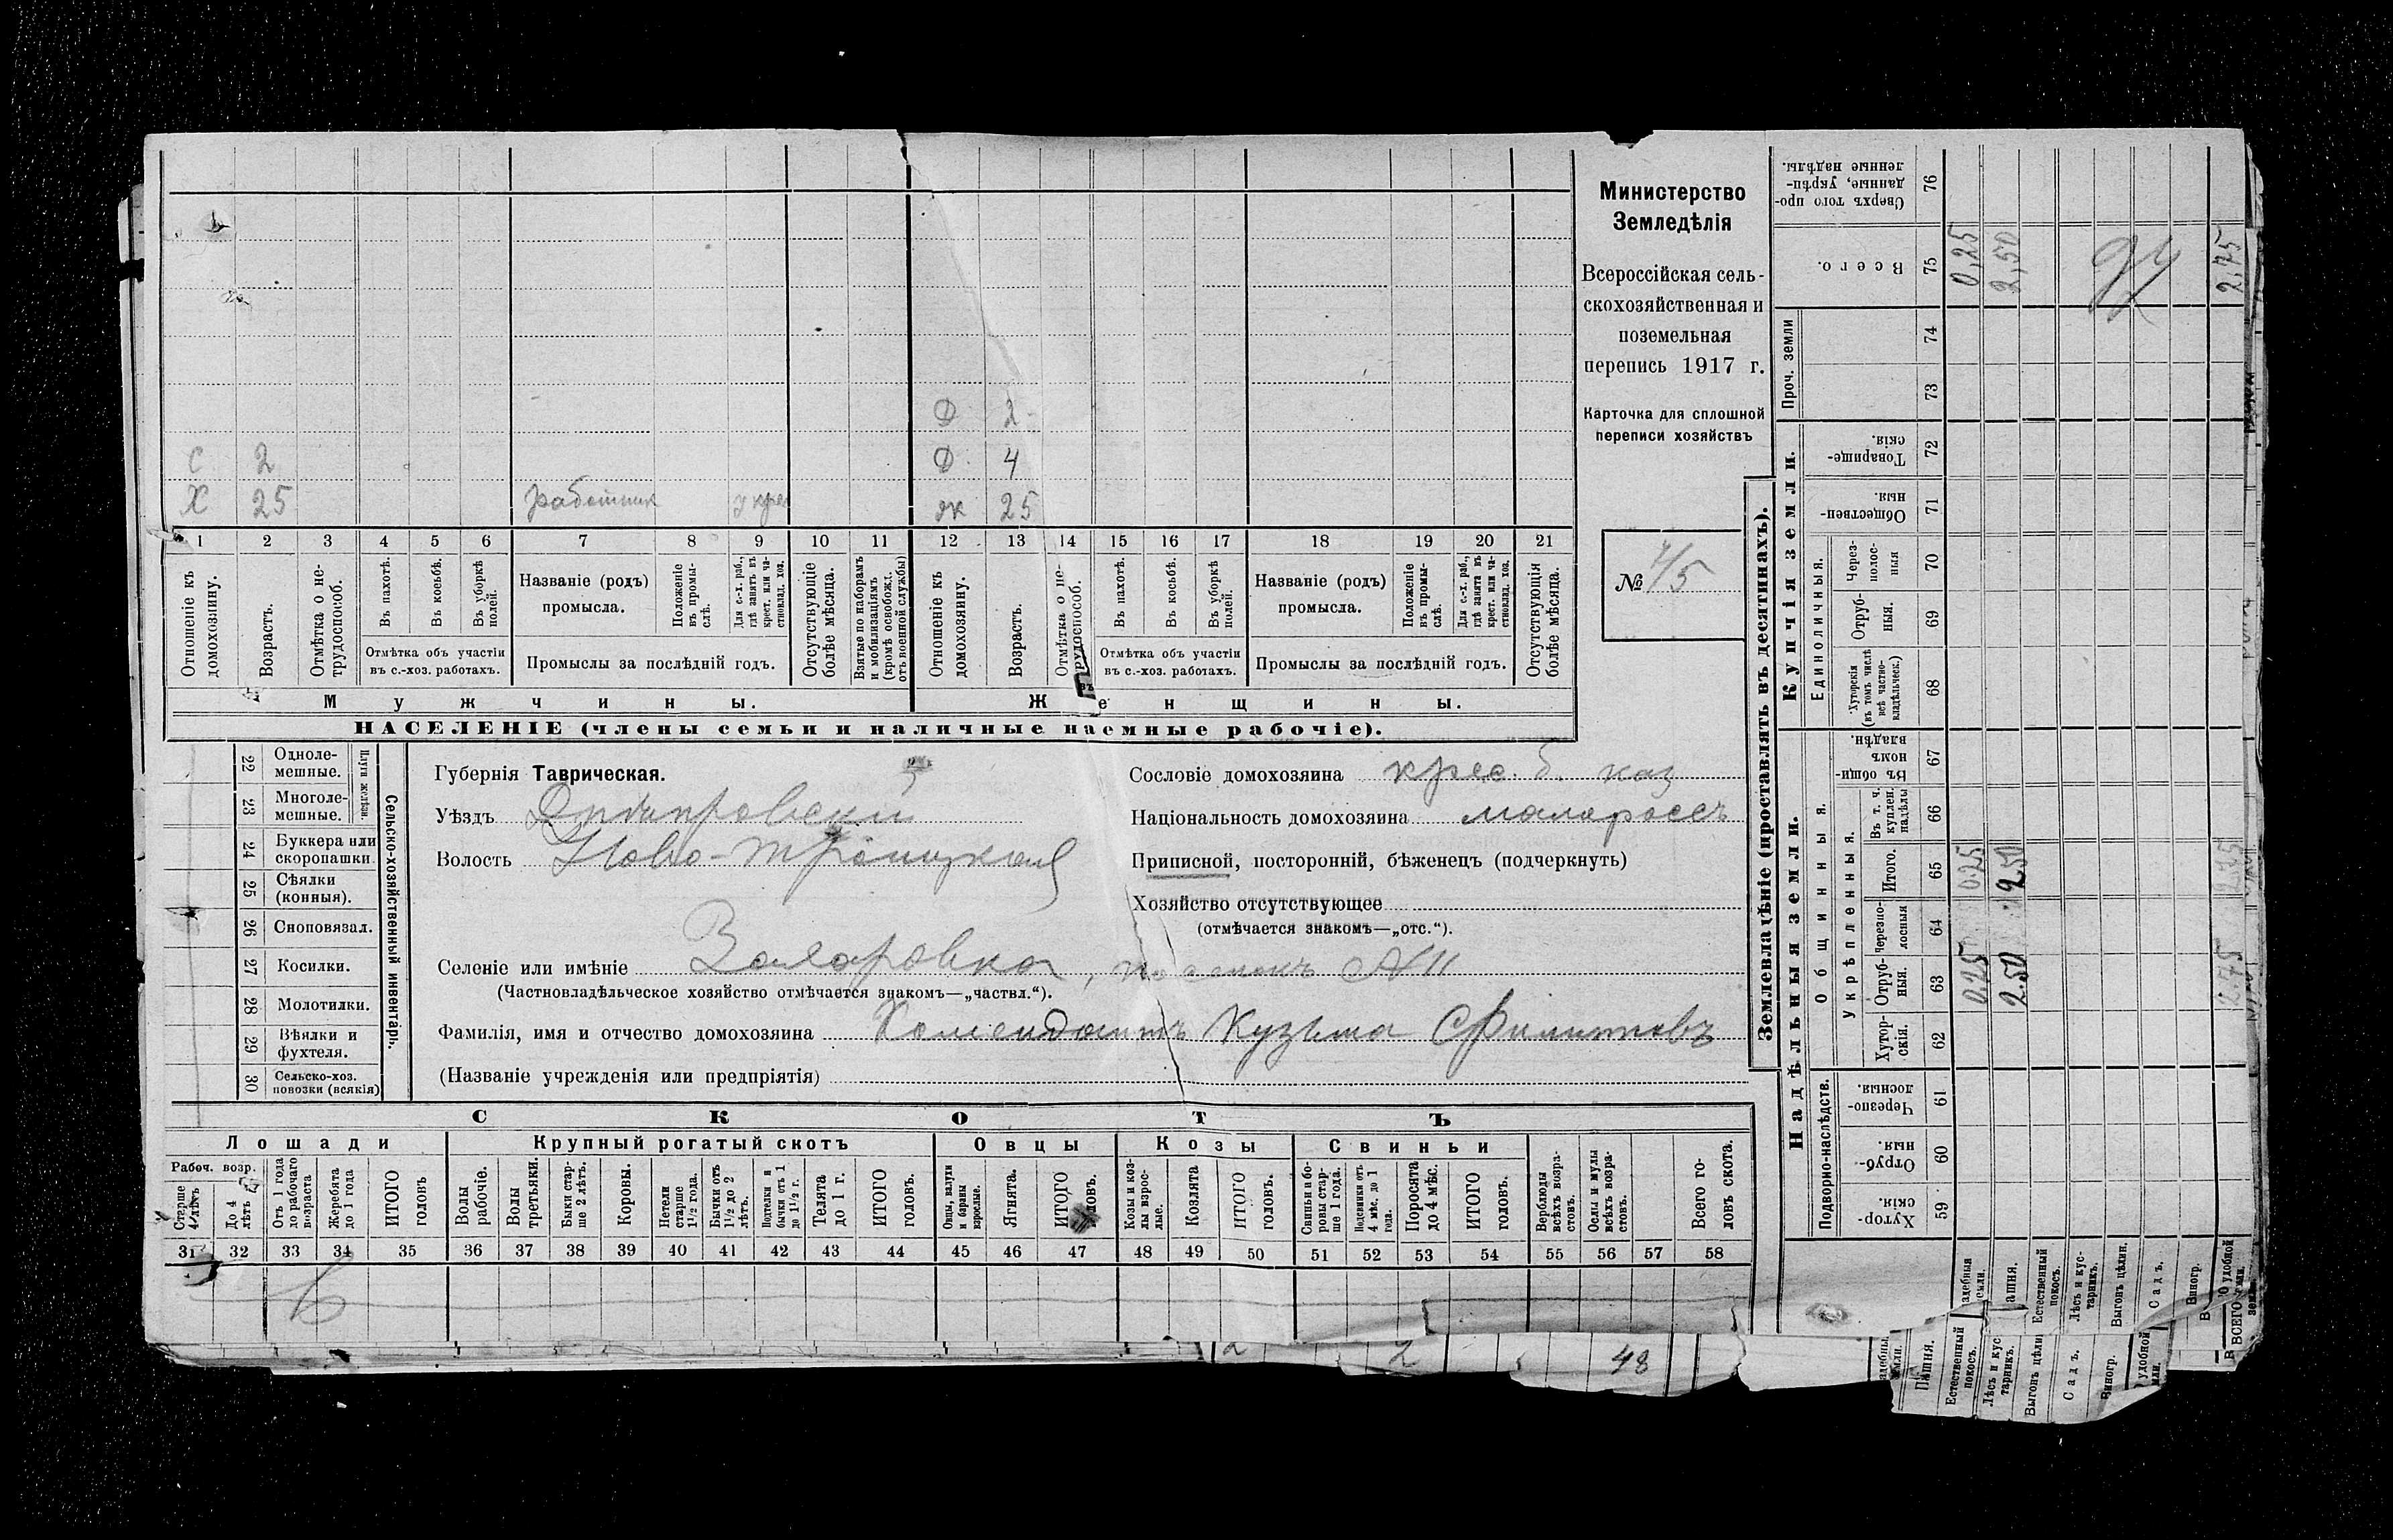 Министерство
Земледѣлія
Всероссійская сель-
скохозяйственная и
поземельная
перепись 1917 г.
Карточка для сплошной
переписи хозяйствъ
№ 4/5
Д 2
С 2 Д 4
Х 25 работник у крес ж 25
1 2 3 4 5 6 7 8 9 10 11 12 13 14 15 16 17 18 19 20 21
Отношеніе къ домохозяину.
Возрастъ.
Отмѣтка о не-трудоспособ.
Въ пахотѣ.
Въ косьбѣ.
Въ уборкѣ полей.
Отмѣтка объ участіи
въ с.-хоз. работахъ.
Названіе (родъ)
промысла.
Положеніе въ промы-слѣ.
Для с.-х. раб., гдѣ занятъ въ крест. или ча-стновлад. хоз.
Промыслы за послѣдній годъ.
Отсутствующіе болѣе мѣсяца.
Взятые по наборамъ и мобилизаціямъ (кромѣ освобожд. отъ военной службы)
Отношеніе къ домохозяину.
Возрастъ.
Отмѣтка о не-трудоспособ.
Въ пахотѣ.
Въ косьбѣ.
Въ уборкѣ полей.
Отмѣтка объ участіи
въ с.-хоз. работахъ.
Названіе (родъ)
промысла.
Положеніе въ промы-слѣ.
Для с.-х. раб., гдѣ занята въ крест. или ча-стновлад. хоз.
Промыслы за послѣдній годъ.
Отсутствующія болѣе мѣсяца.
Мужчины. Женщины.
НАСЕЛЕНІЕ (члены семьи и наличные наемные рабочіе).
22 Одноле-мешные.
23 Многоле-мешные.
Плуги желѣзн.
24 Буккера или скоропашки.
25 Сѣялки (конныя).
26 Сноповязал.
27 Косилки.
28 Молотилки.
29 Вѣялки и фухтеля.
30 Сельско-хоз. повозки (всякія)
Сельско-хозяйственный инвентарь.
Губернія Таврическая.
Уѣздъ Днѣпровскій
Волость Ново-Троицкая
Селеніе или имѣніе Захаровка, поселокъ №11
(Частновладѣльческое хозяйство отмѣчается знакомъ—„частвл.“).
Фамилія, имя и отчество домохозяина Комендантъ Кузьма Филиповъ
(Названіе учрежденія или предпріятія)
Сословіе домохозяина крес. б. каз
Національность домохозяина малороссъ
Приписной, посторонній, бѣженецъ (подчеркнуть)
Хозяйство отсутствующее
(отмѣчается знакомъ—„отс.“).
СКОТЪ
Лошади
Крупный рогатый скотъ
Овцы
Козы
Свиньи
Рабоч. возр.
Старше 4 лѣтъ
До 4 лѣтъ
Отъ 1 года до рабочаго возраста
Жеребята до 1 года
ИТОГО головъ
Волы рабочіе.
Волы третьяки.
Быки стар-ше 2 лѣтъ.
Коровы.
Нетели старше 1½ года.
Бычки отъ 1½ до 2 лѣтъ.
Подтелки и бычки отъ 1 до 1½ г.
Телята до 1 г.
ИТОГО головъ.
Овцы, валухи и бараны взрослые.
Ягнята.
ИТОГО головъ.
Козы и коз-лы взрос-лые.
Козлята
ИТОГО головъ.
Свиньи и бо-ровы стар-ше 1 года.
Подсвинки отъ 4 мѣс. до 1 года.
Поросята до 4 мѣс.
ИТОГО головъ.
Верблюды всѣхъ возра-стовъ.
Ослы и мулы всѣхъ возра-стовъ.
Всего го-ловъ скота.
31 32 33 34 35 36 37 38 39 40 41 42 43 44 45 46 47 48 49 50 51 52 53 54 55 56 57 58
2 2 48
Землевладѣніе (проставлять въ десятинахъ).
Надѣльныя земли.
Купчія земли.
Проч. земли
Подворно-наслѣдств.
Общинныя.
Укрѣпленныя.
Единоличныя.
Хутор-скія. 59
Отруб-ныя. 60
Черезпо-лосныя. 61
Хутор-скія. 62
Отруб-ныя. 63
Черезпо-лосныя 64
Итого. 65
Въ т. ч. куплен. надѣлы 66
Въ общин-номъ владѣн. 67
Хуторскія (въ томъ числѣ всѣ частно-владѣльческ.) 68
Отруб-ныя. 69
Через-полос-ныя 70
Обществен-ныя. 71
Товарище-скія. 72
73
74
Всего. 75
Сверхъ того про-данные, укрѣп-ленные надѣлы. 76
0.25 0.25 0,25
2.50 2.50 2,50
2.75 2.75 2,75
адебныя
ашня.
Естественный покосъ.
Лѣсъ и кус-тарникъ.
Выгонъ цѣлин.
Садъ.
Виногр.
ВСЕГО удобной земли.
Пашня.
Естественный покосъ.
Лѣсъ и кус-тарникъ.
Выгонъ цѣлин
Садъ.
Виногр.
удобной